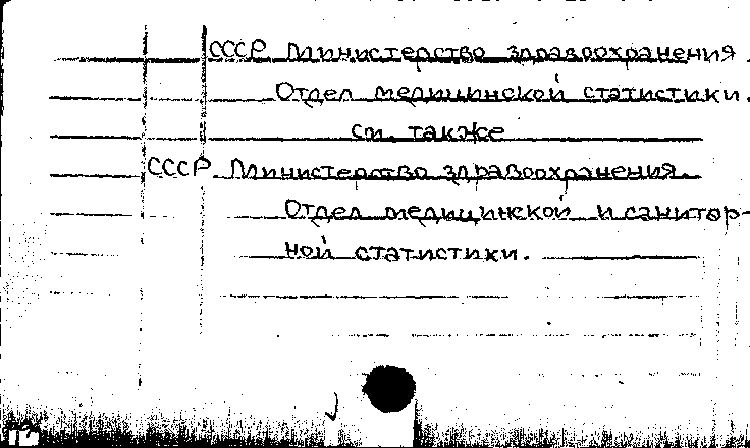 СССР Министерство здравоохранения.
Отдел медицинской статистики.
см. также
СССР Министерство здравоохранения.
Отдел медицинской и санитар-
ной статистики.